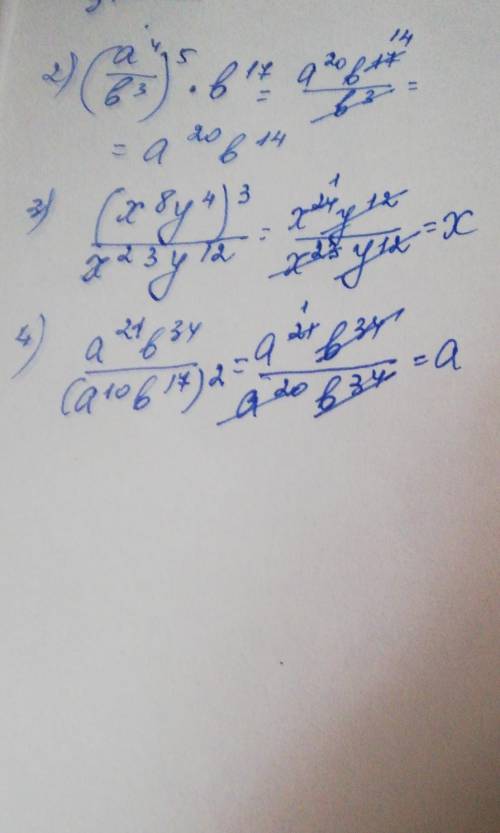 2) (a⁴/b³)⁵ · b¹⁷ = a²⁰b¹⁷ ¹⁴/b³ =
= a²⁰b¹⁴
3) (x⁸y⁴)³/x²³y¹² = x²⁴ ¹y¹²/x²³y¹² = x
4) a²¹b³⁴/(a¹⁰b¹⁷)² = a²¹ ¹b³⁴/a²⁰b³⁴ = a